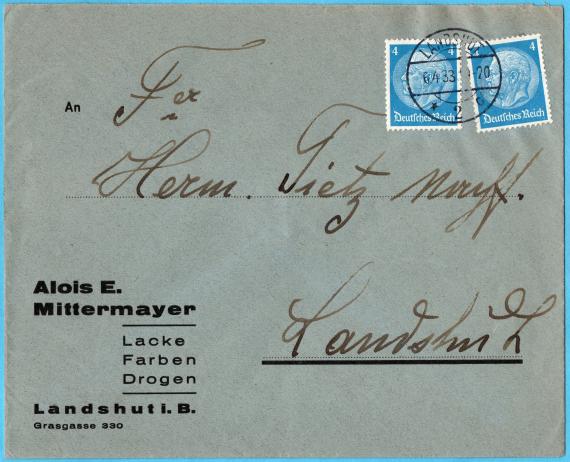 4
4
LANDSHUT
6.4.33
20
2
Deutsches Reich
Deutsches Reich
An
Herm. Tietz Nachf.
Landshut
Alois E.
Mittermayer
Lacke
Farben
Drogen
Landshut i. B.
Grasgasse 330